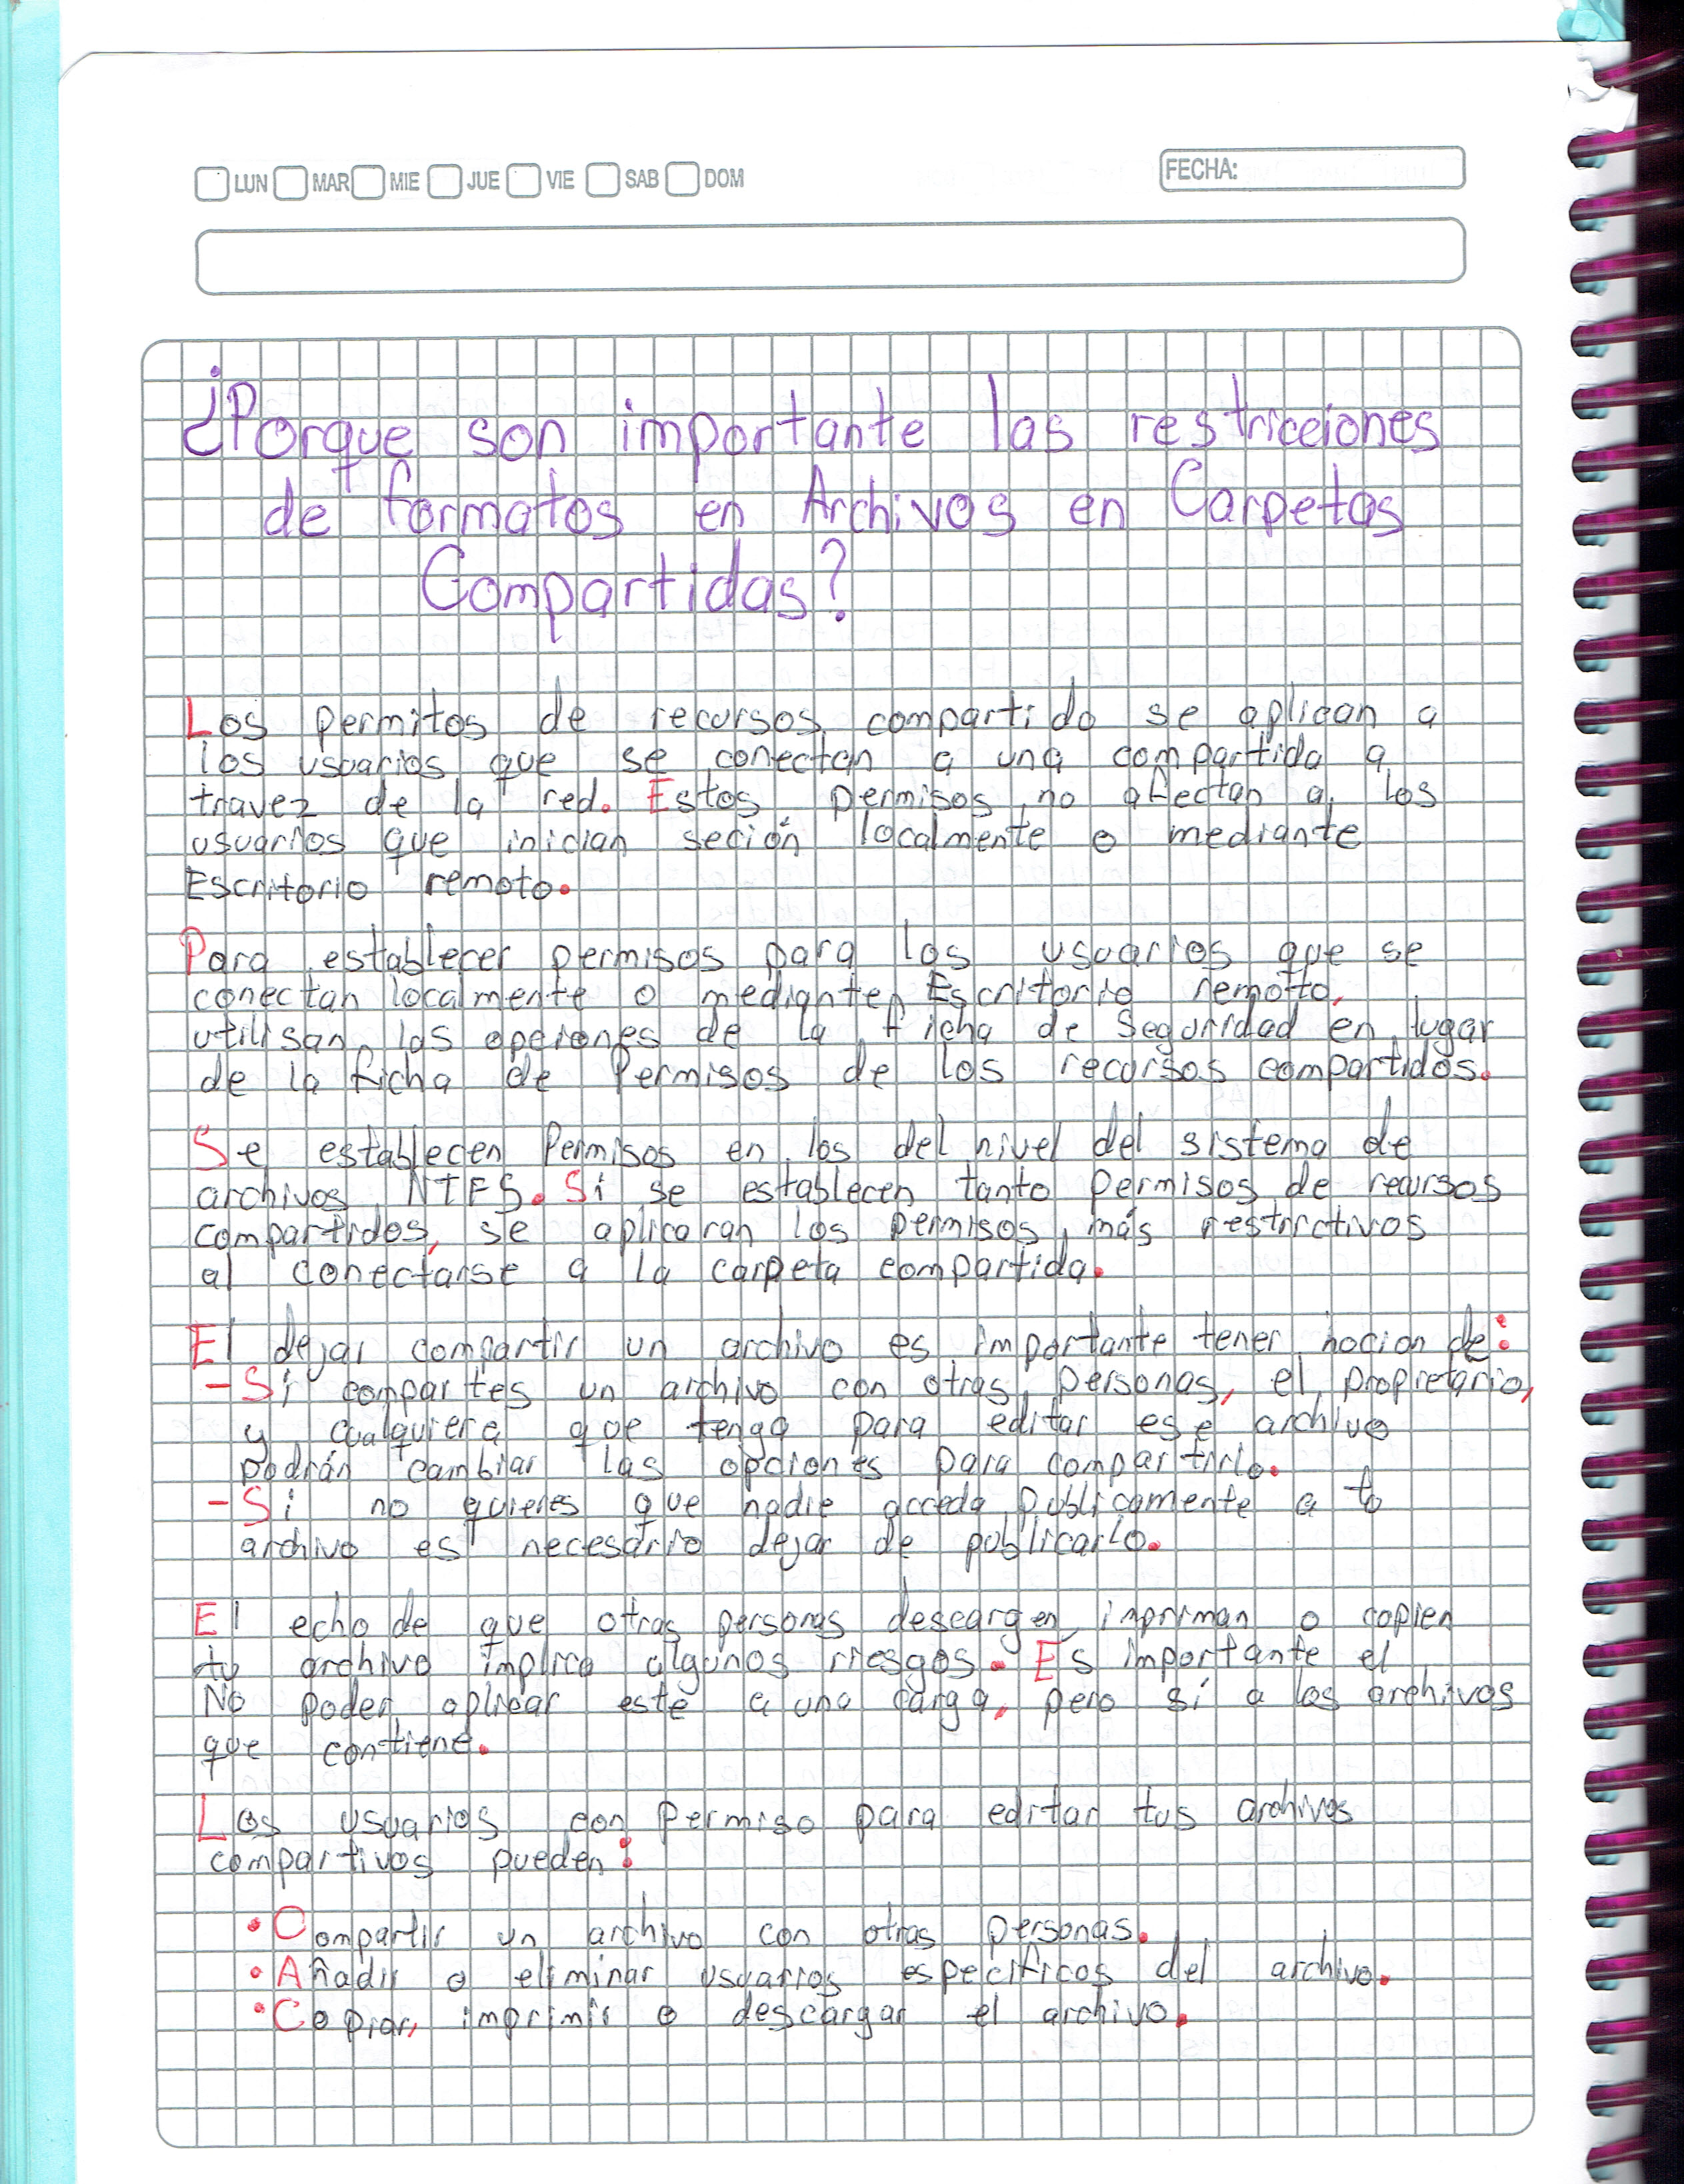 LUN MAR MIE JUE VIE SAB DOM
FECHA:
¿Porque son importante las restricciones
de formatos en Archivos en Carpetas
Compartidas?
Los permitos de recursos compartido se aplican a
los usuarios que se conectan a una compartida a
travez de la red. Estos permisos no afectan a los
usuarios que inician seción localmente o mediante
Escritorio remoto.
Para establecer permisos para los usuarios que se
conectan localmente o mediante Escritorio remoto,
utilisan las opciones de la ficha de Seguridad en lugar
de la ficha de Permisos de los recursos compartidos.
Se establecen Permisos en los del nivel del sistema de
archivos NTFS. Si se establecen tanto permisos de recursos
compartidos, se aplicaran los permisos más restrictivos
al conectarse a la carpeta compartida.
El dejar compartir un archivo es importante tener nocion de:
- Si compartes un archivo con otras personas, el propietario,
y cualquiera que tenga para editar ese archivo
podrán cambiar las opciones para compartirlo.
- Si no quieres que nadie acceda publicamente a tu
archivo es necesario dejar de publicarlo.
El echo de que otras personas descargen, impriman o copien
tu archivo implica algunos riesgos. Es importante el
No poder aplicar este a una carga, pero sí a los archivos
que contiene.
Los usuarios con permiso para editar tus archivos
compartivos pueden:
• Compartir un archivo con otras personas.
• Añadir o eliminar usuarios especificos del archivo.
• Copiar, imprimir o descargar el archivo.